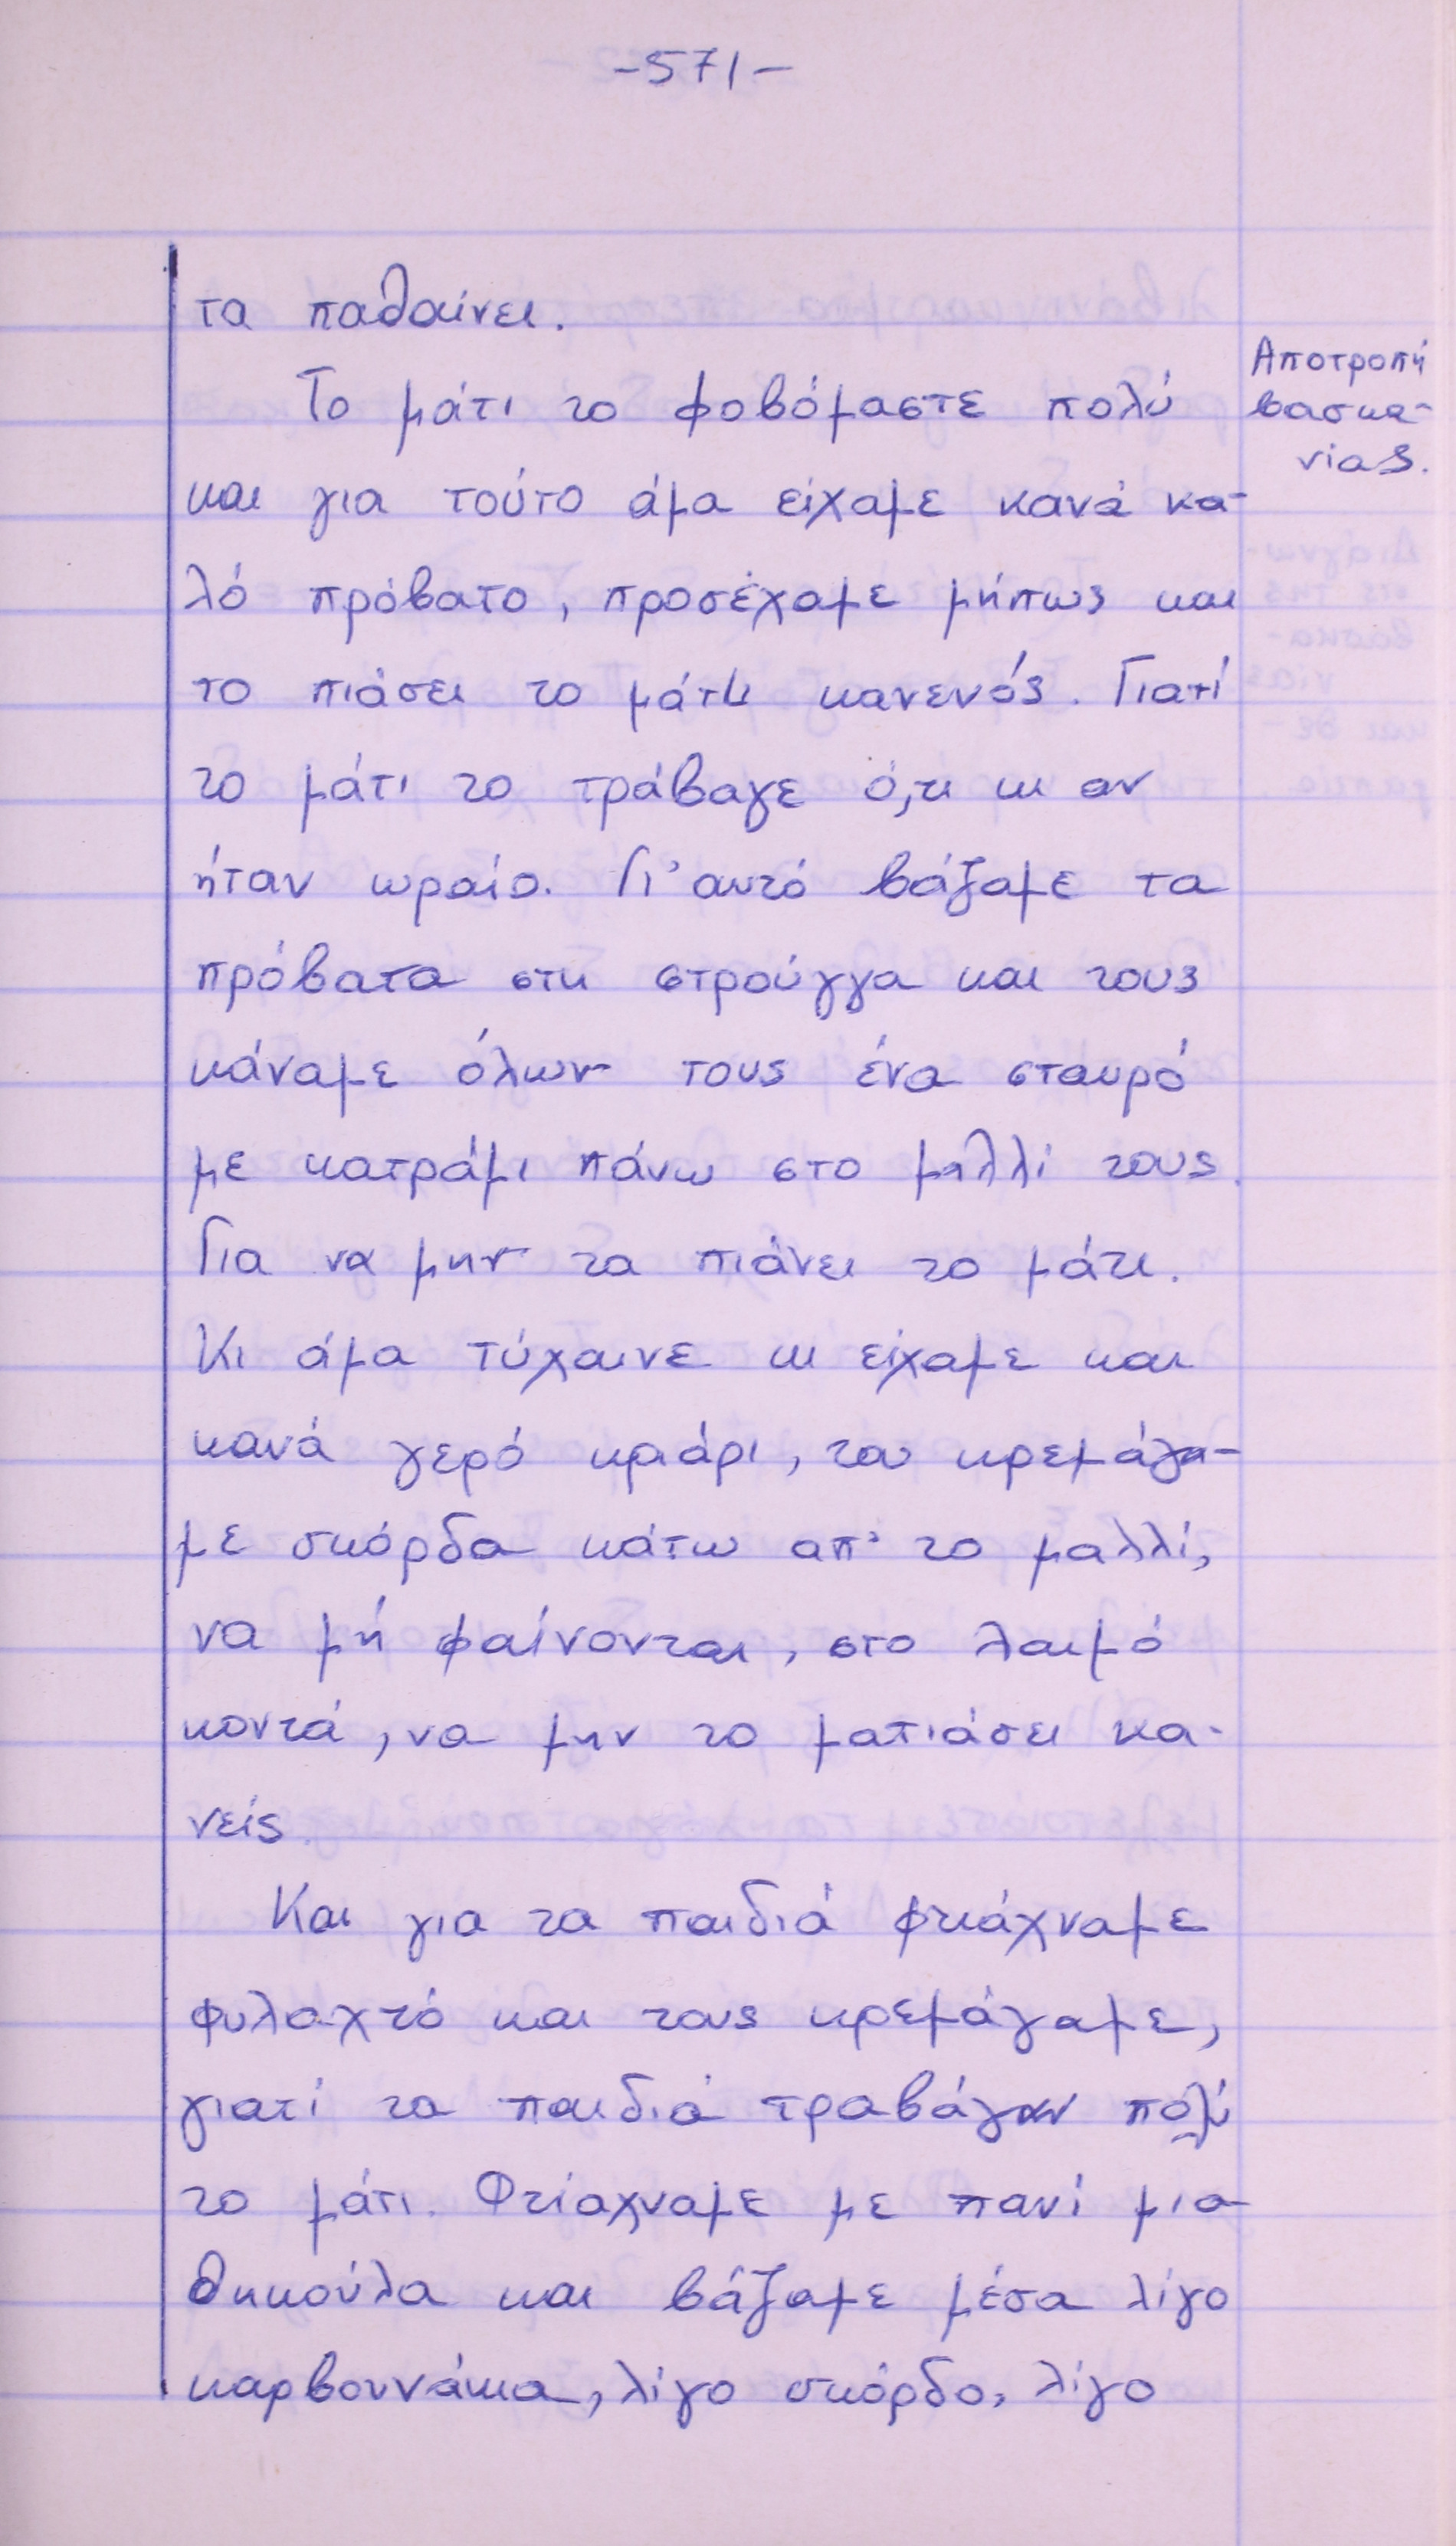 -571-
τα παθαίνει.
Το μάτι το φοβόμαστε πολύ
και για τούτο άμα είχαμε κανά κα-
λό πρόβατο, προσέχαμε μήπως και
το πιάσει το μάτι κανενός. Γιατί
το μάτι το τράβαγε ό,τι κι αν
ήταν ωραίο. Γι' αυτό βάζαμε τα
πρόβατα στη στρούγγα και τους
κάναμε όλων τους ένα σταυρό
με κατράμι πάνω στο μαλλί τους.
Για να μην τα πιάνει το μάτι.
Κι άμα τύχαινε κι είχαμε και
κανά γερό κριάρι, του κρεμάγα-
με σκόρδα κάτω απ' το μαλλί,
να μή φαίνονται, στο λαιμό
κοντά, να μην το ματιάσει κα-
νείς.
Και για τα παιδιά φτιάχναμε
φυλαχτό και τους κρεμάγαμε,
γιατί τα παιδιά τραβάγαν πολύ
το μάτι. Φτίαχναμε με πανί μια
θηκούλα και βάζαμε μέσα λίγο
καρβουνάκια, λίγο σκόρδο, λίγο
Αποτροπή
βασκα-
νίας.